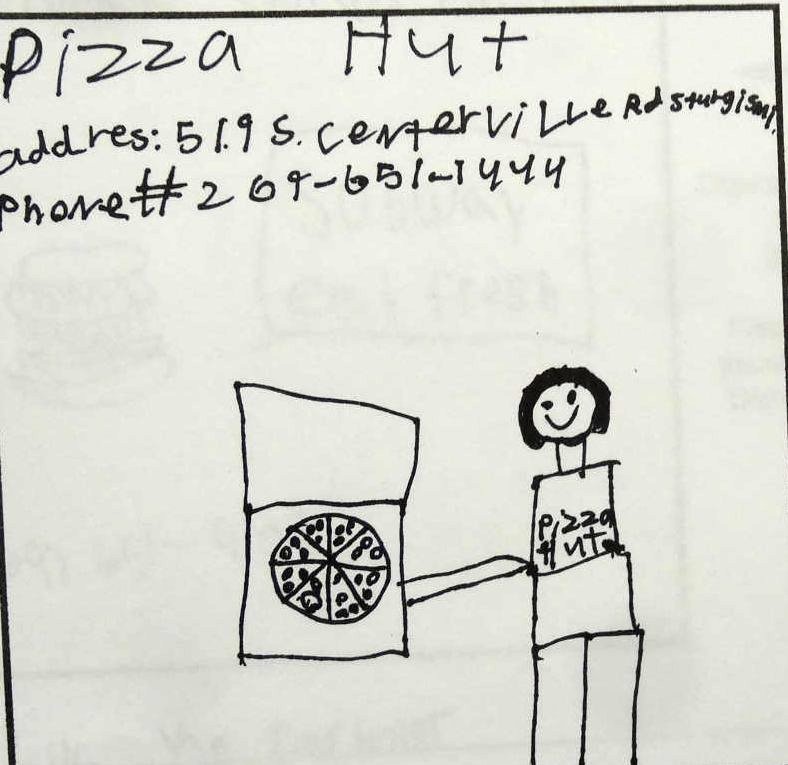 Pizza Hut
addres: 519 S. Centerville Rd Sturgis mi.
Phone # 269-651-1444
Pizza
Hut